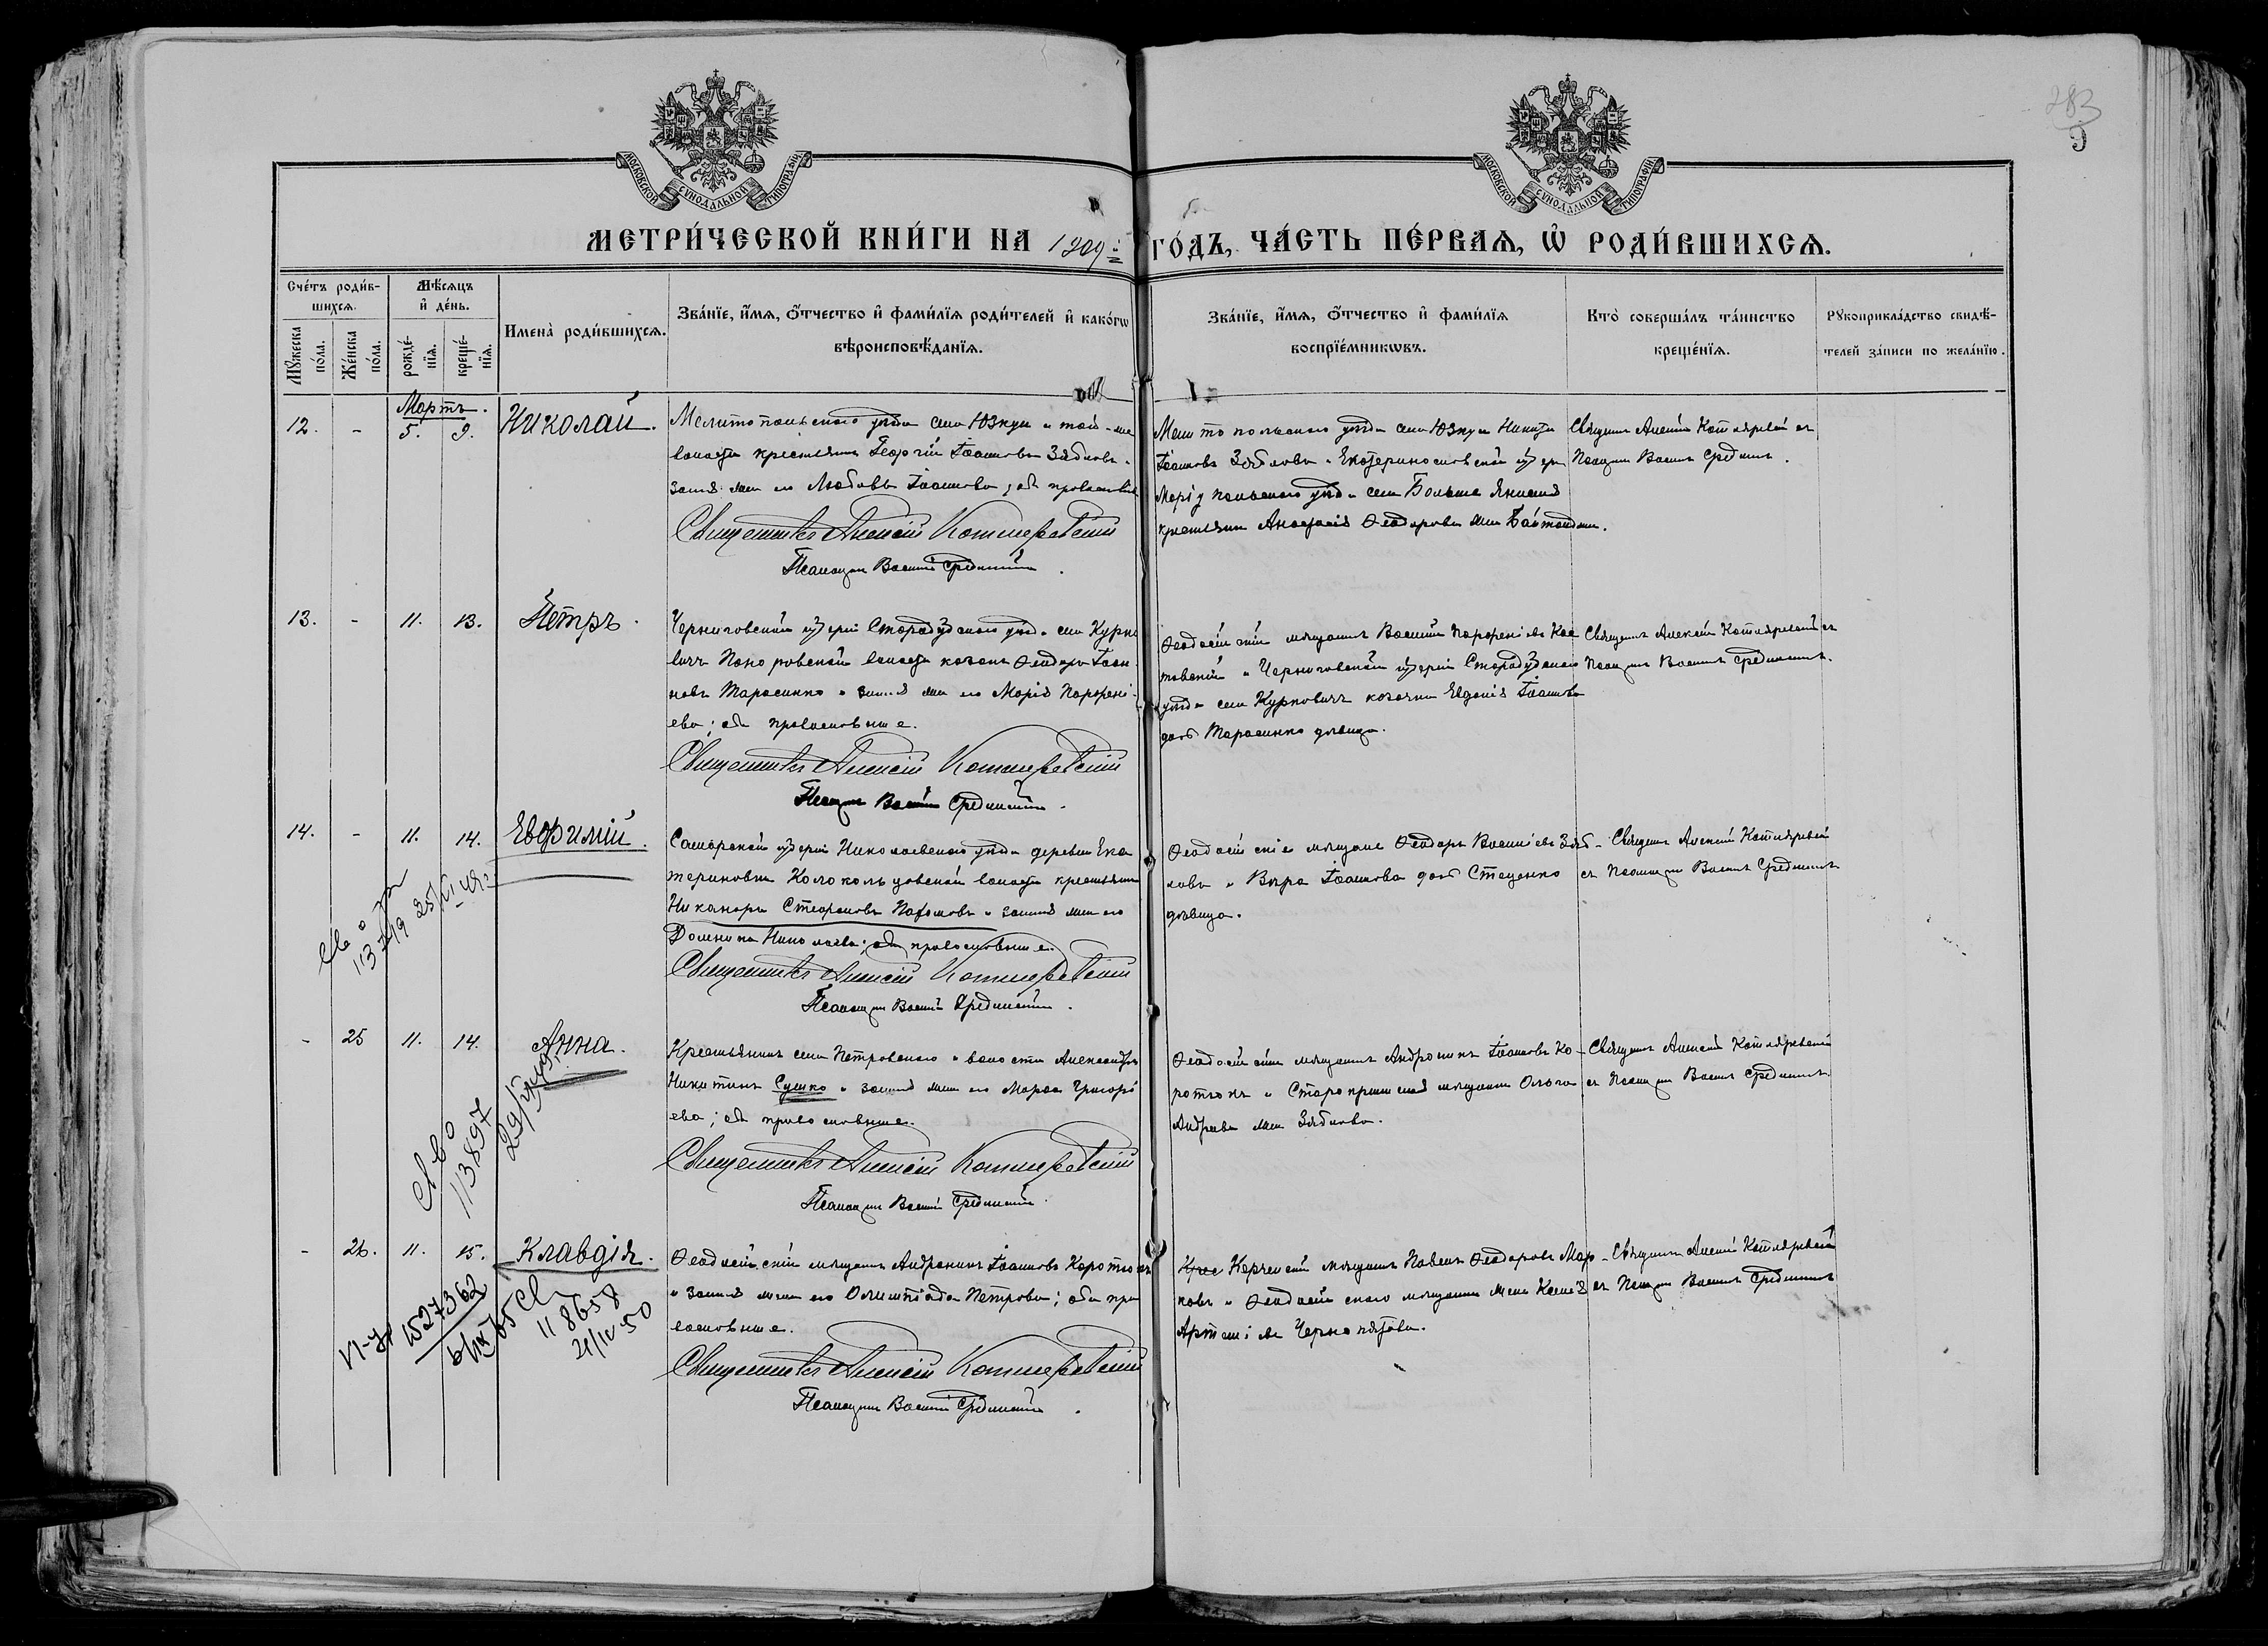 283
9
МОСКОВСКОЙ СѴНОДАЛЬНОЙ ТИПОГРАФІИ
МОСКОВСКОЙ СѴНОДАЛЬНОЙ ТИПОГРАФІИ
МЕТРИ́ЧЕСКОЙ КНИ́ГИ НА 1909 й ГО́ДЪ, ЧА́СТЬ ПЕ́РВАѦ, Ѡ҆ РОДИ́ВШИХСѦ.
Сче́тъ роди́в-
шихсѧ.
Мꙋ́жеска по́ла.
Же́нска по́ла.
Мѣ́сѧцъ
и҆ де́нь.
рожде́-
нїѧ.
креще́-
нїѧ.
Имена̀ роди́вшихсѧ.
Зва́нїе, и҆́мѧ, ѻ҆́тчество и҆ фами́лїѧ роди́телей и҆ како́гѡ
вѣроисповѣ́данїѧ.
Зва́нїе, и҆́мѧ, ѻ҆́тчество и҆ фами́лїѧ
воспрїе́мникѡвъ.
Кто̀ соверша́лъ та́инство
креще́нїѧ.
Рꙋкоприкла́дство свидѣ́-
телей за́писи по жела́нїю.
Мартъ.
12. - 5. 9. Николай.
Мелитопольскаго уѣзда села Юзкуи и той-же
волости крестьянинъ Георгій Іоанновъ Зябловъ и
законная жена его Любовь Іоаннова; оба православные
Священникъ Алексій Котляревскій
Псаломщикъ Василій Срединскій
Мелитопольскаго уѣзда села Юзкуи Никита
Іоанновъ Зябловъ и Екатеринославской губерніи
Маріупольскаго уѣзда села Больше Янисоль
крестьянка Анастасія Ѳеодорова жена
Священникъ Алексій Котляревскій съ
Псаломщикомъ Василіемъ Срединскимъ.
13. - 11. 13. Петръ.
Черниговской губерніи Стародубскаго уѣзда села Курко
вичъ Понуровской волости козакъ Ѳеодоръ Іоан
новъ Тарасенко и законная жена его Марія Парфені-
ева; оба православные.
Священникъ Алексій Котляревскій
Псаломщикъ Василій Срединскій.
Ѳеодосійскій мѣщанинъ Василій Парфеніевъ Кос
товскій и Черниговской губерніи Стародубскаго
уѣзда села Курковичъ козачка Евдокія Іоаннова
дочь Тарасенко дѣвица.
Священникъ Алексій Котляревскій съ
Псаломщикомъ Василіемъ Срединскимъ.
14. - 11. 14. Евфимій.
Самарской губерніи Николаевскаго уѣзда деревни Ека
териновки Колокольцовской волости крестьянинъ
Никаноръ Стефановъ Пахомовъ и законная жена его
Домника Николаева; оба православные.
Священникъ Алексій Котляревскій
Псаломщикъ Василій Срединскій.
Ѳеодосійскіе мѣщане Ѳеодоръ Василіевъ Зяб-
ловъ и Вѣра Іоаннова дочь Стеценко
дѣвица.
Священникъ Алексій Котляревскій
съ Псаломщикомъ Василіемъ Срединскимъ
113719 25/XI 49 г.
- 25 11. 14. Анна.
Крестьянинъ села Петровскаго и волости Александръ
Никитинъ Сушко и законная жена его Марѳа Григорі
ева; оба православные.
Священникъ Алексій Котляревскій
Псаломщикъ Василій Срединскій.
Ѳеодосійскій мѣщанинъ Андроникъ Іоанновъ Ко-
ротюкъ и Старокрымская мѣщанка Ольга
Андреева жена Зяблова.
Священникъ Алексій Котляревскій
съ Псаломщикомъ Василіемъ Срединскимъ.
Св во
113897
- 26. 11. 15. Клавдія.
Ѳеодосійскій мѣщанинъ Андроникъ Іоанновъ Коротюкъ
и законная жена его Олимпіада Петрова; оба пра
вославные.
Священникъ Алексій Котляревскій
Псаломщикъ Василій Срединскій.
Керченскій мѣщанинъ Павелъ Ѳеодоровъ Мар-
ковъ и Ѳеодосійскаго мѣщанина жена Ксенія
Артеміева Чернопятова.
Священникъ Алексій Котляревскій
съ Псаломщикомъ Василіемъ Срединскимъ
1527362
118658
21/IV 50